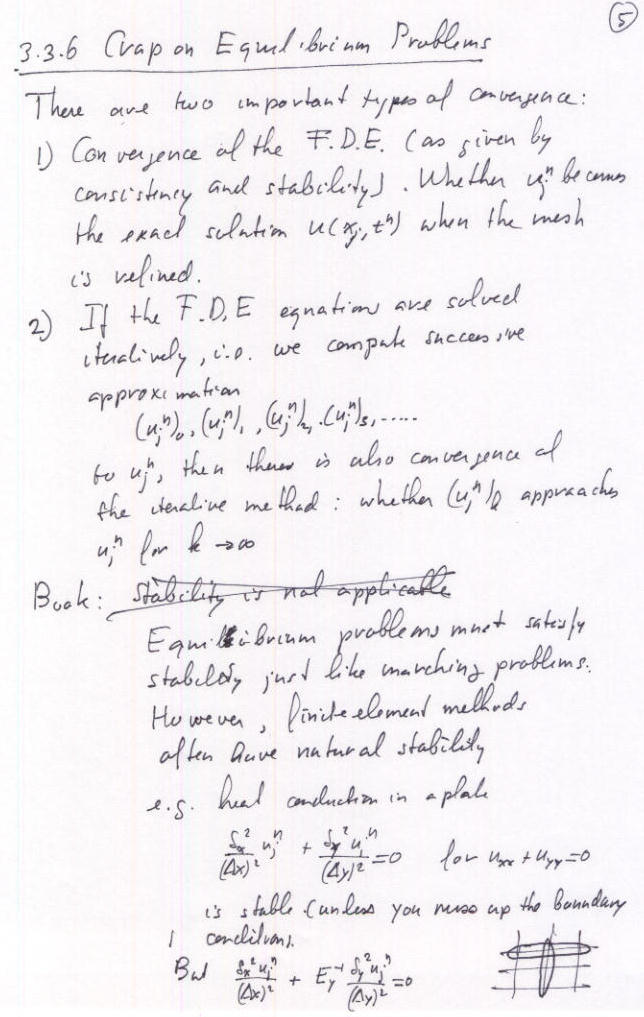 5
3.3.6 Crap on Equilibrium Problems
There are two important types of convergence:
1) Convergence of the F.D.E. (as given by
consistency and stability). Whether uⱼⁿ becomes
the exact solution u(xⱼ, tⁿ) when the mesh
is refined.
2) If the F.D.E equation are solved
iteratively, i.e. we compute successive
approximation
(uⱼⁿ)₀, (uⱼⁿ)₁, (uⱼⁿ)₂, (uⱼⁿ)₃, .....
to uⱼⁿ, then there is also convergence of
the iterative method : whether (uⱼⁿ)ₖ approaches
uⱼⁿ for k → ∞
Book: Stability is not applicable
Equilibrium problems must satisfy
stability just like marching problems.
However, finite element methods
often have natural stability
e.g. heat conduction in a plate
δₓ² uⱼⁿ / (Δx)² + δᵧ² uⱼⁿ / (Δy)² = 0 for uₓₓ + uᵧᵧ = 0
is stable (unless you mess up the boundary
conditions.
But δₓ² uⱼⁿ / (Δx)² + Eᵧ⁻¹ δᵧ² uⱼⁿ / (Δy)² = 0